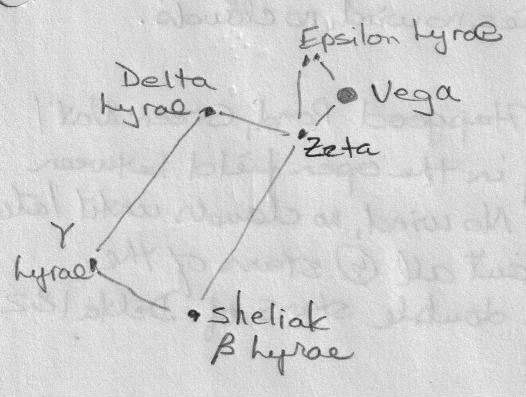 Epsilon Lyrae
Delta
Lyrae
Vega
Zeta
γ
Lyrae
Sheliak
β Lyrae